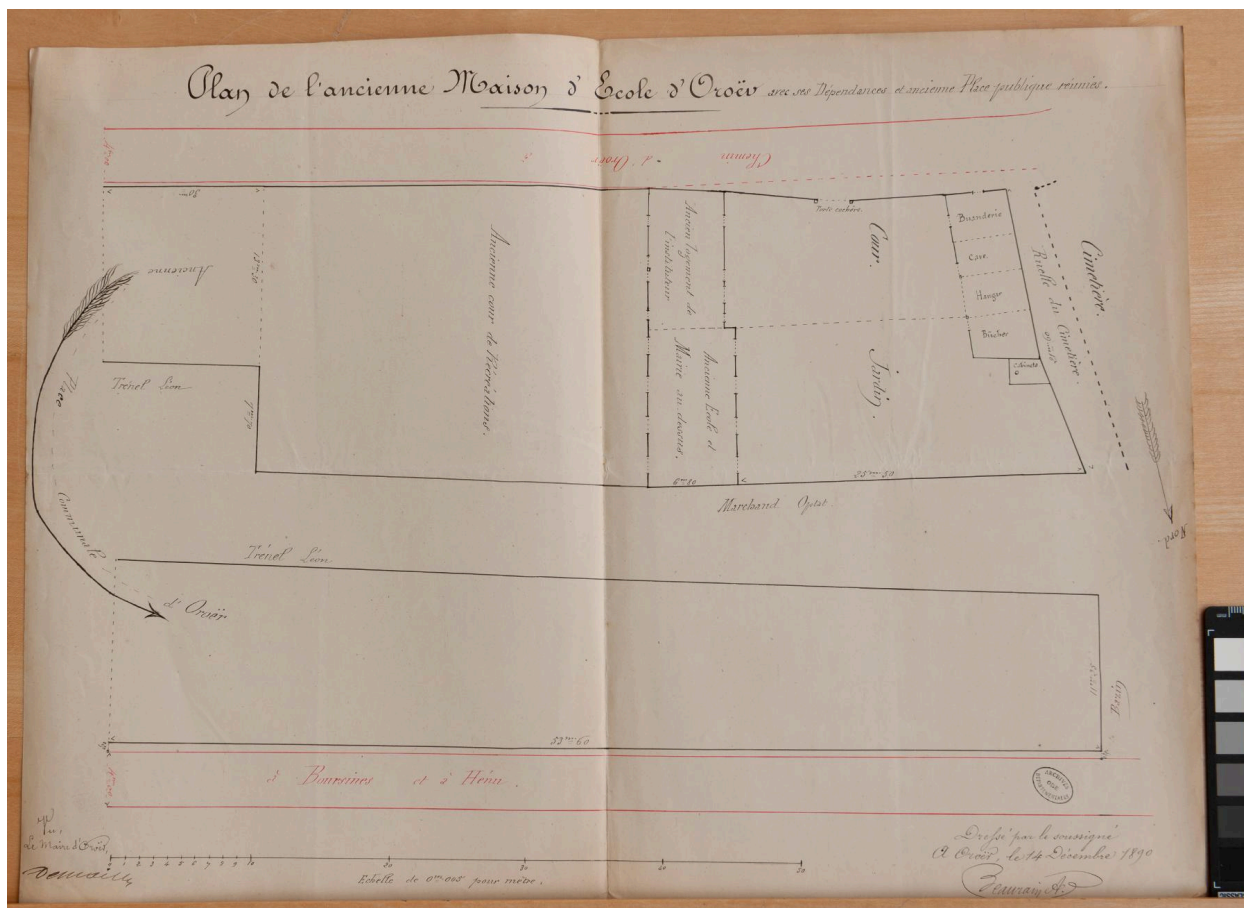 Plan de l'ancienne Maison d'Ecole d'Oroër avec ses Dépendances et ancienne Place publique réunies.
Chemin d'Oroër à
Porte cochère.
Ancienne
Place
Communale
d'Oroër
Trénel Léon
Ancienne cour de Récréations.
Ancien logement de
l'instituteur
Ancienne Ecole et
Mairie au dessus.
Cour.
Jardin.
Buanderie
Cave.
Hangar
Bûcher
Cabinets
Ruelle du Cimetière.
Cimetière.
Nord.
6m80
35m50
Marchand Optat
Trénel Léon
53m60
à Boursines et à Hénu.
ARCHIVES
OISE
DEPARTEMENTALES
Vu,
Le Maire d'Oroër,
0 1 2 3 4 5 6 7 8 9 10 20 30 40 50
Echelle de 0m005 pour mètre.
Dressé par le soussigné
A Oroër, le 14 Décembre 1890
Beaurain A.